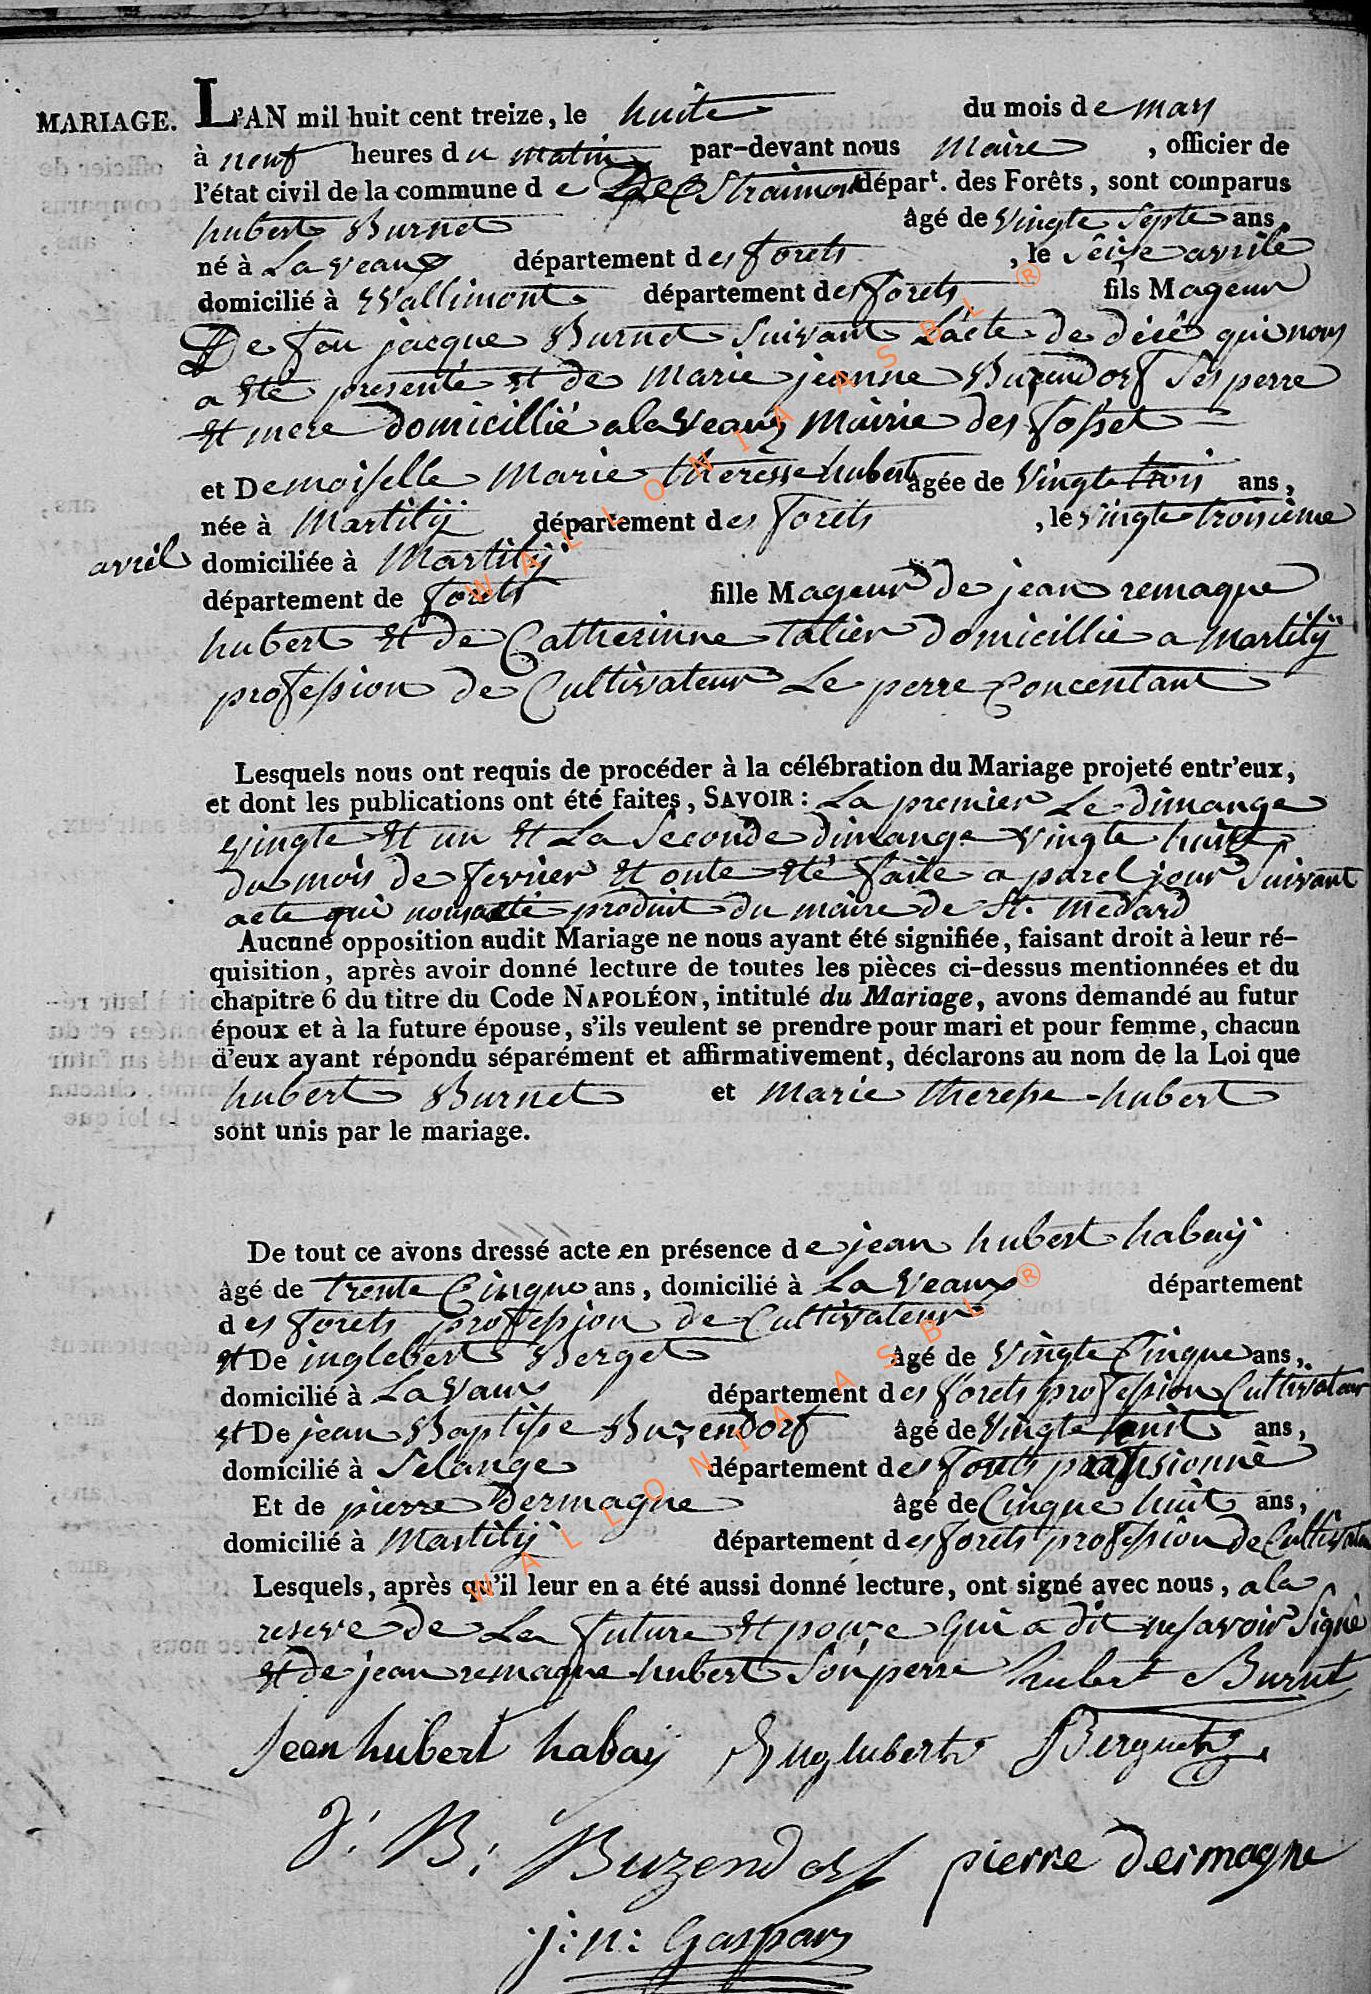 MARIAGE. L'AN mil huit cent treize, le huite du mois de mars
à neuf heures du matin par-devant nous Maire, officier de
l'état civil de la commune de Straimont départ. des Forêts, sont comparus
hubert Burnet âgé de vingte septe ans,
né à La Veaux département des forets, le seize avrile
domicilié à Wallimont département des forets fils Mageur
De feu jacque Burnet suivant lacte de décé qui nous
a été presenté et de marie jeanne Buzendorf ses perre
et mere domicillié a la Veaux Mairie des fosset
et Demoiselle Marie theresse hubert âgée de vingte trois ans,
née à Martilÿ département des forets, le vingte troisième
avril domiciliée à Martilÿ
département de forets fille Mageur de jean remaque
hubert et de Catherinne talier domicillié a martilÿ
profession de Cultivateur Le perre Concentant
Lesquels nous ont requis de procéder à la célébration du Mariage projeté entr'eux,
et dont les publications ont été faites, SAVOIR : La premier Le dimange
vingte et un et La Seconde dimange vingte huit
du mois de fevrier et onte eté faite a parel jour Suivant
acte qui nous a eté produit du maire de St. Medard
Aucune opposition audit Mariage ne nous ayant été signifiée, faisant droit à leur ré-
quisition, après avoir donné lecture de toutes les pièces ci-dessus mentionnées et du
chapitre 6 du titre du Code NAPOLÉON, intitulé du Mariage, avons demandé au futur
époux et à la future épouse, s'ils veulent se prendre pour mari et pour femme, chacun
d'eux ayant répondu séparément et affirmativement, déclarons au nom de la Loi que
hubert Burnet et Marie therese hubert
sont unis par le mariage.
De tout ce avons dressé acte en présence de jean hubert habaÿ
âgé de trente Cinque ans, domicilié à La Veaux département
des forets profession de Cultivateur
et De inglebert Berget âgé de Vingte Cinque ans,
domicilié à La Vaux département des forets profession Cultivateur
et De jean Baptise Buzendorf âgé de Vingte huit ans,
domicilié à Selange département des forets
Et de pierre Dermagne âgé de Cinque huit ans,
domicilié à Martilÿ département des forets profession de Cultivateur
Lesquels, après qu'il leur en a été aussi donné lecture, ont signé avec nous, a la
reserve de La future et qui a dit ne savoir Signé
et de jean remaque hubert Son perre hubert Burnet
Jean hubert habaÿ Englubert Berguet
J. B. Buzendorf pierre dermagne
j: n: Gaspar
WALLONIA ASBL ®
WALLONIA ASBL ®